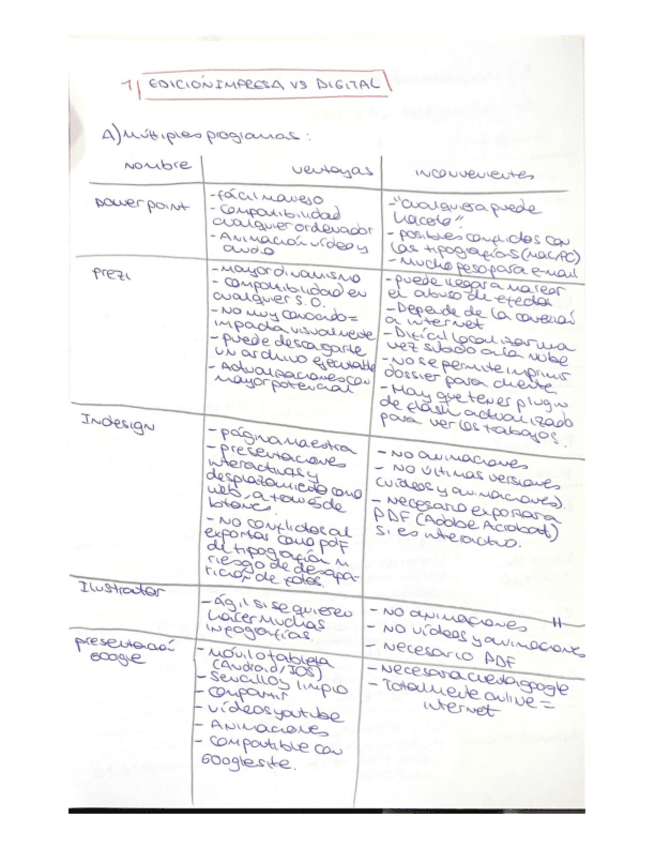 1) EDICIÓN IMPRESA VS DIGITAL
A) Múltiples programas:
nombre
ventajas
inconvenientes
power point
- fácil manejo
- compatibilidad
cualquier ordenador
- Animación vídeo y
audio
- "cualquiera puede
hacerlo"
- posibles conflictos con
las tipografías (MAC/PC)
- Mucho peso para e-mail
prezi
- mayor dinamismo
- compatibilidad en
cualquier S.O.
- No muy conocido =
impacta visualmente
- puede descargarte
un archivo ejecutable
- Actualizaciones con
mayor potencial
- puede llegar a marear
el abuso de efectos
- Depende de la conexión
a internet
- Difícil localizar una
vez subido a la nube
- No se permite imprimir
dossier para cliente
- Hay que tener plugin
de flash actualizado
para ver los trabajos.
Indesign
- página maestra
- presentaciones
interactivas y
desplazamiento como
web, a través de
botones.
- No conflictos al
exportar como pdf
de tipografía ni
riesgo de desapa-
rición de fotos.
- No animaciones
- No últimas versiones
(vídeos y animaciones).
- necesario exportar a
PDF (Adobe Acrobat)
si es interactivo.
Ilustrator
- Ágil si se quieren
hacer muchas
infografías
- No animaciones
- No vídeos y animaciones
- necesario PDF
presentació
Google
- móvil o tableta
(Android/IOS)
- Sencillo y limpio
- compartir
- vídeos youtube
- Animaciones
- compatible con
Google site.
- Necesaria cuenta google
- Totalmente online =
internet